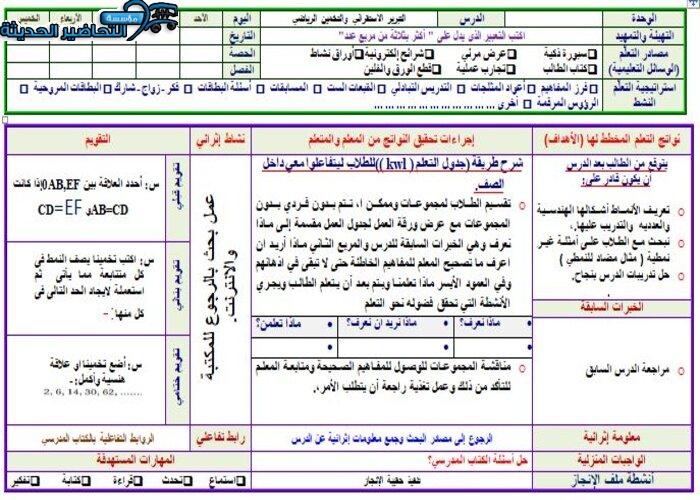 مؤسسة
التحاضير الحديثة
الوحدة
الدرس
التبرير الاستقرائي والتخمين الرياضي
اليوم
الأحد
الأربعاء
الخميس
التهيئة والتمهيد
اكتب التعبير الذي يدل على " أكثر بثلاثة من مربع عدد"
التاريخ
مصادر التعلم
(الوسائل التعليمية)
سبورة ذكية
عرض مرئي
شرائح إلكترونية
أوراق نشاط
الحصة
كتاب الطالب
تجارب عملية
قطع الورق والفلين
الفصل
استراتيجية التعلم النشط
فرز المفاهيم
أعواد المثلجات
التدريس التبادلي
القبعات الست
المسابقات
أسئلة البطاقات
فكر - زواج - شارك
البطاقات المروحية
الرؤوس المرقمة
أخرى
نواتج التعلم المخطط لها (الأهداف)
إجراءات تحقيق النواتج من المعلم والمتعلم
نشاط إثرائي
التقويم
يتوقع من الطالب بعد الدرس
أن يكون قادر على:
تعريف الأنماط أشكالها الهندسية
والعدديه والتدريب عليها.
نبحث مع الطلاب على أمثلة غير
نمطية ( مثال مضاد للنمطي )
حل تدريبات الدرس بنجاح.
الخبرات السابقة
مراجعة الدرس السابق
شرح طريقة (جدول التعلم ( kwl ))للطلاب ليتفاعلوا معي داخل
الصف.
تقسيم الطلاب لمجموعات وممكن ا، نتم بدون فردي بدون
المجموعات مع عرض ورقة العمل لجدول العمل مقسمة إلى ماذا
نعرف وهي الخبرات السابقة للدرس والمربع الثاني ماذا أريد ان
اعرف ما تصحيح المعلم للمفاهيم الخاطئة حتى لا تبقى في اذهانهم
وفي العمود الأيسر ماذا تعلمنا ويتم بعد أن يتعلم الطالب ويجري
الأنشطة التي تحقق فضوله نحو التعلم
ماذا نعرف؟
ماذا نريد ان نعرف؟
ماذا تعلمن؟
مناقشة المجموعات للوصول للمفاهيم الصحيحة ومتابعة المعلم
للتأكد من ذلك وعمل تغذية راجعة أن يتطلب الأمر.
عمل بحث بالرجوع للمكتبة
والانترنت.
تقويم قبلي
س: أحدد العلاقة بين 0AB,EF|إذا كانت
AB=CD و CD=EF
تقويم بنائي
س: اكتب تخمينا يصف النمط في
كل متتابعة مما يأتي ثم
استعملة لايجاد الحد التالى فى
كل منها: -
تقويم ختامي
س: أضع تخمينا او علاقة
هنسية وأكمل: ـ
2, 6, 14, 30, 62, .......
معلومة إثرائية
الرجوع إلى مصادر البحث وجمع معلومات إثرائية عن الدرس
رابط تفاعلي
الروابط التفاعلية بالكتاب المدرسي
الواجبات المنزلية
حل أسئلة الكتاب المدرسي؟
المهارات المستهدفة
أنشطة ملف الإنجاز
حقيبة الإنجاز
استماع
تحدث
قراءة
كتابة
تفكير